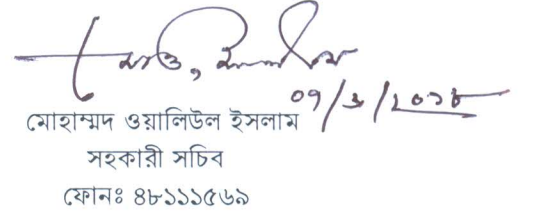 ০৭/৬/২০১৮
মোহাম্মদ ওয়ালিউল ইসলাম
সহকারী সচিব
ফোনঃ ৪৮১১১৫৬৯